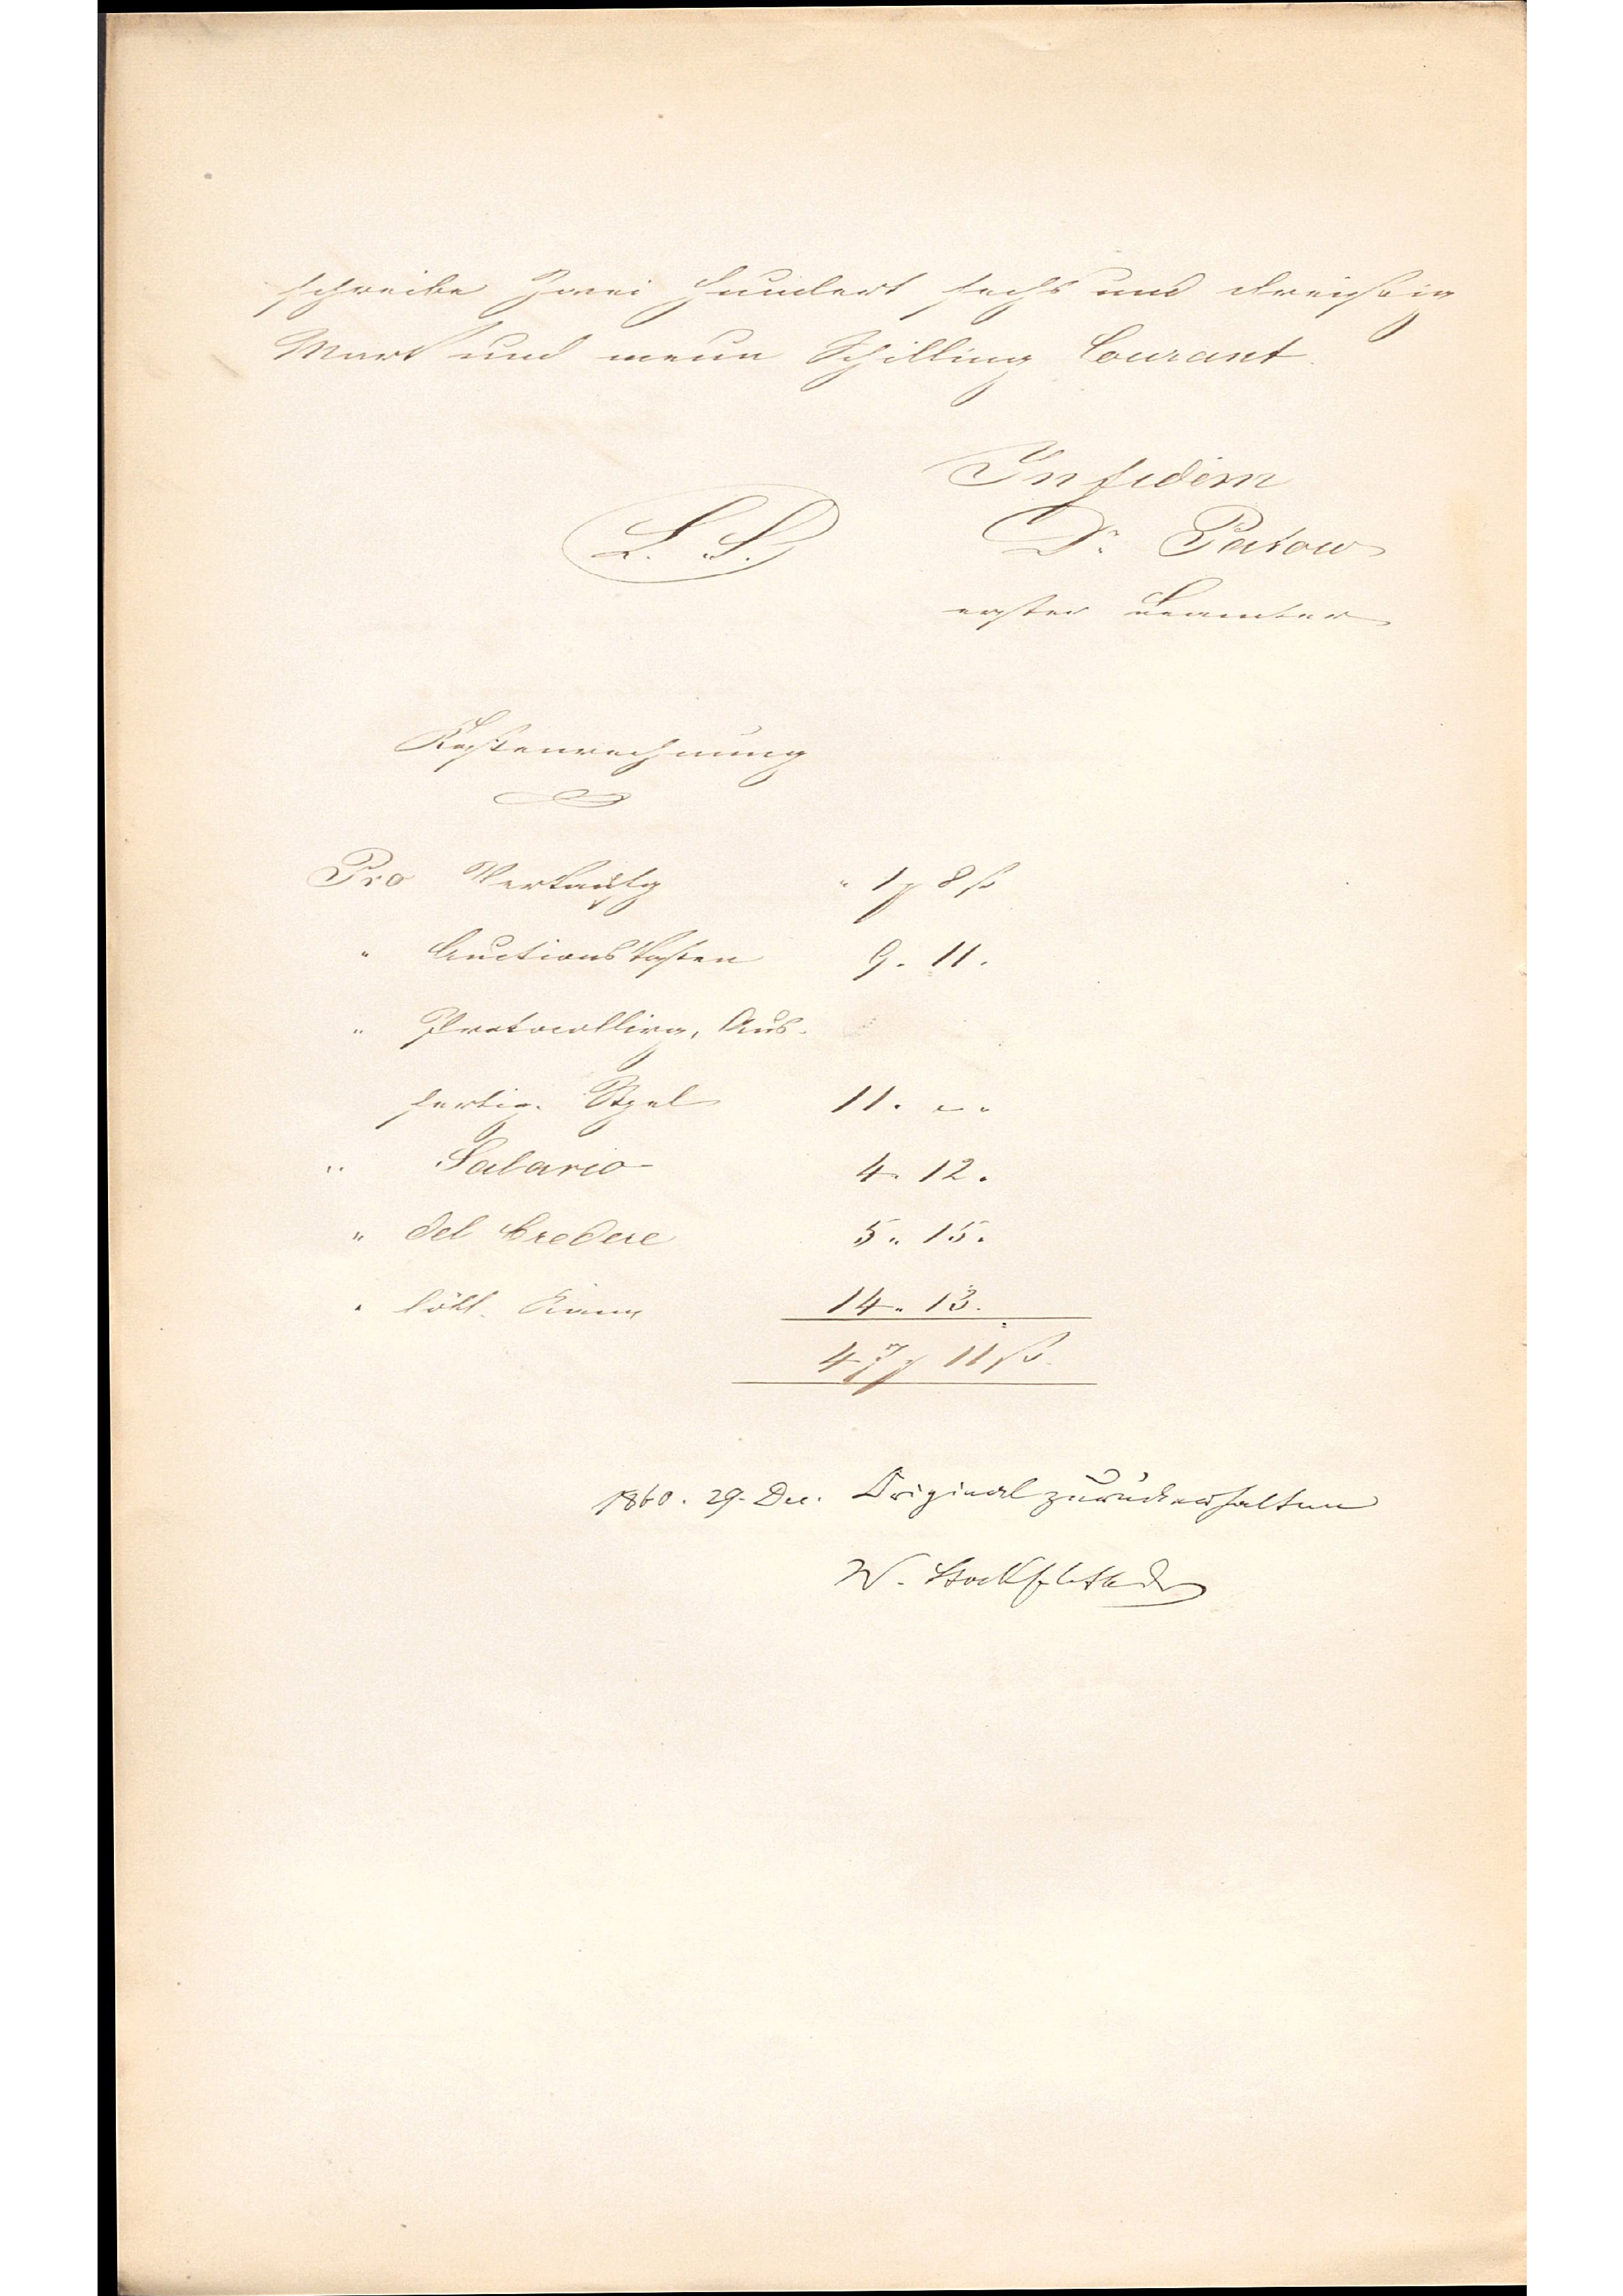 schreibe Zwei Hundert sechs und dreißig
Mark und neun Schilling Courant.
In fidem
L. S. Dr. Patow
erster Beamter
Kostenrechnung
Pro " 1 ₰ 8 ß
" Auctionskosten 9. 11.
" Protocollirg, Aus-
fertig. Stpel 11. " "
" Salario 4. 12.
" del Credere 5. 15.
" löbl. 14. 13.
47 ₰ 11 ß.
1860. 29. Dec. Original zurückerhalten
W.